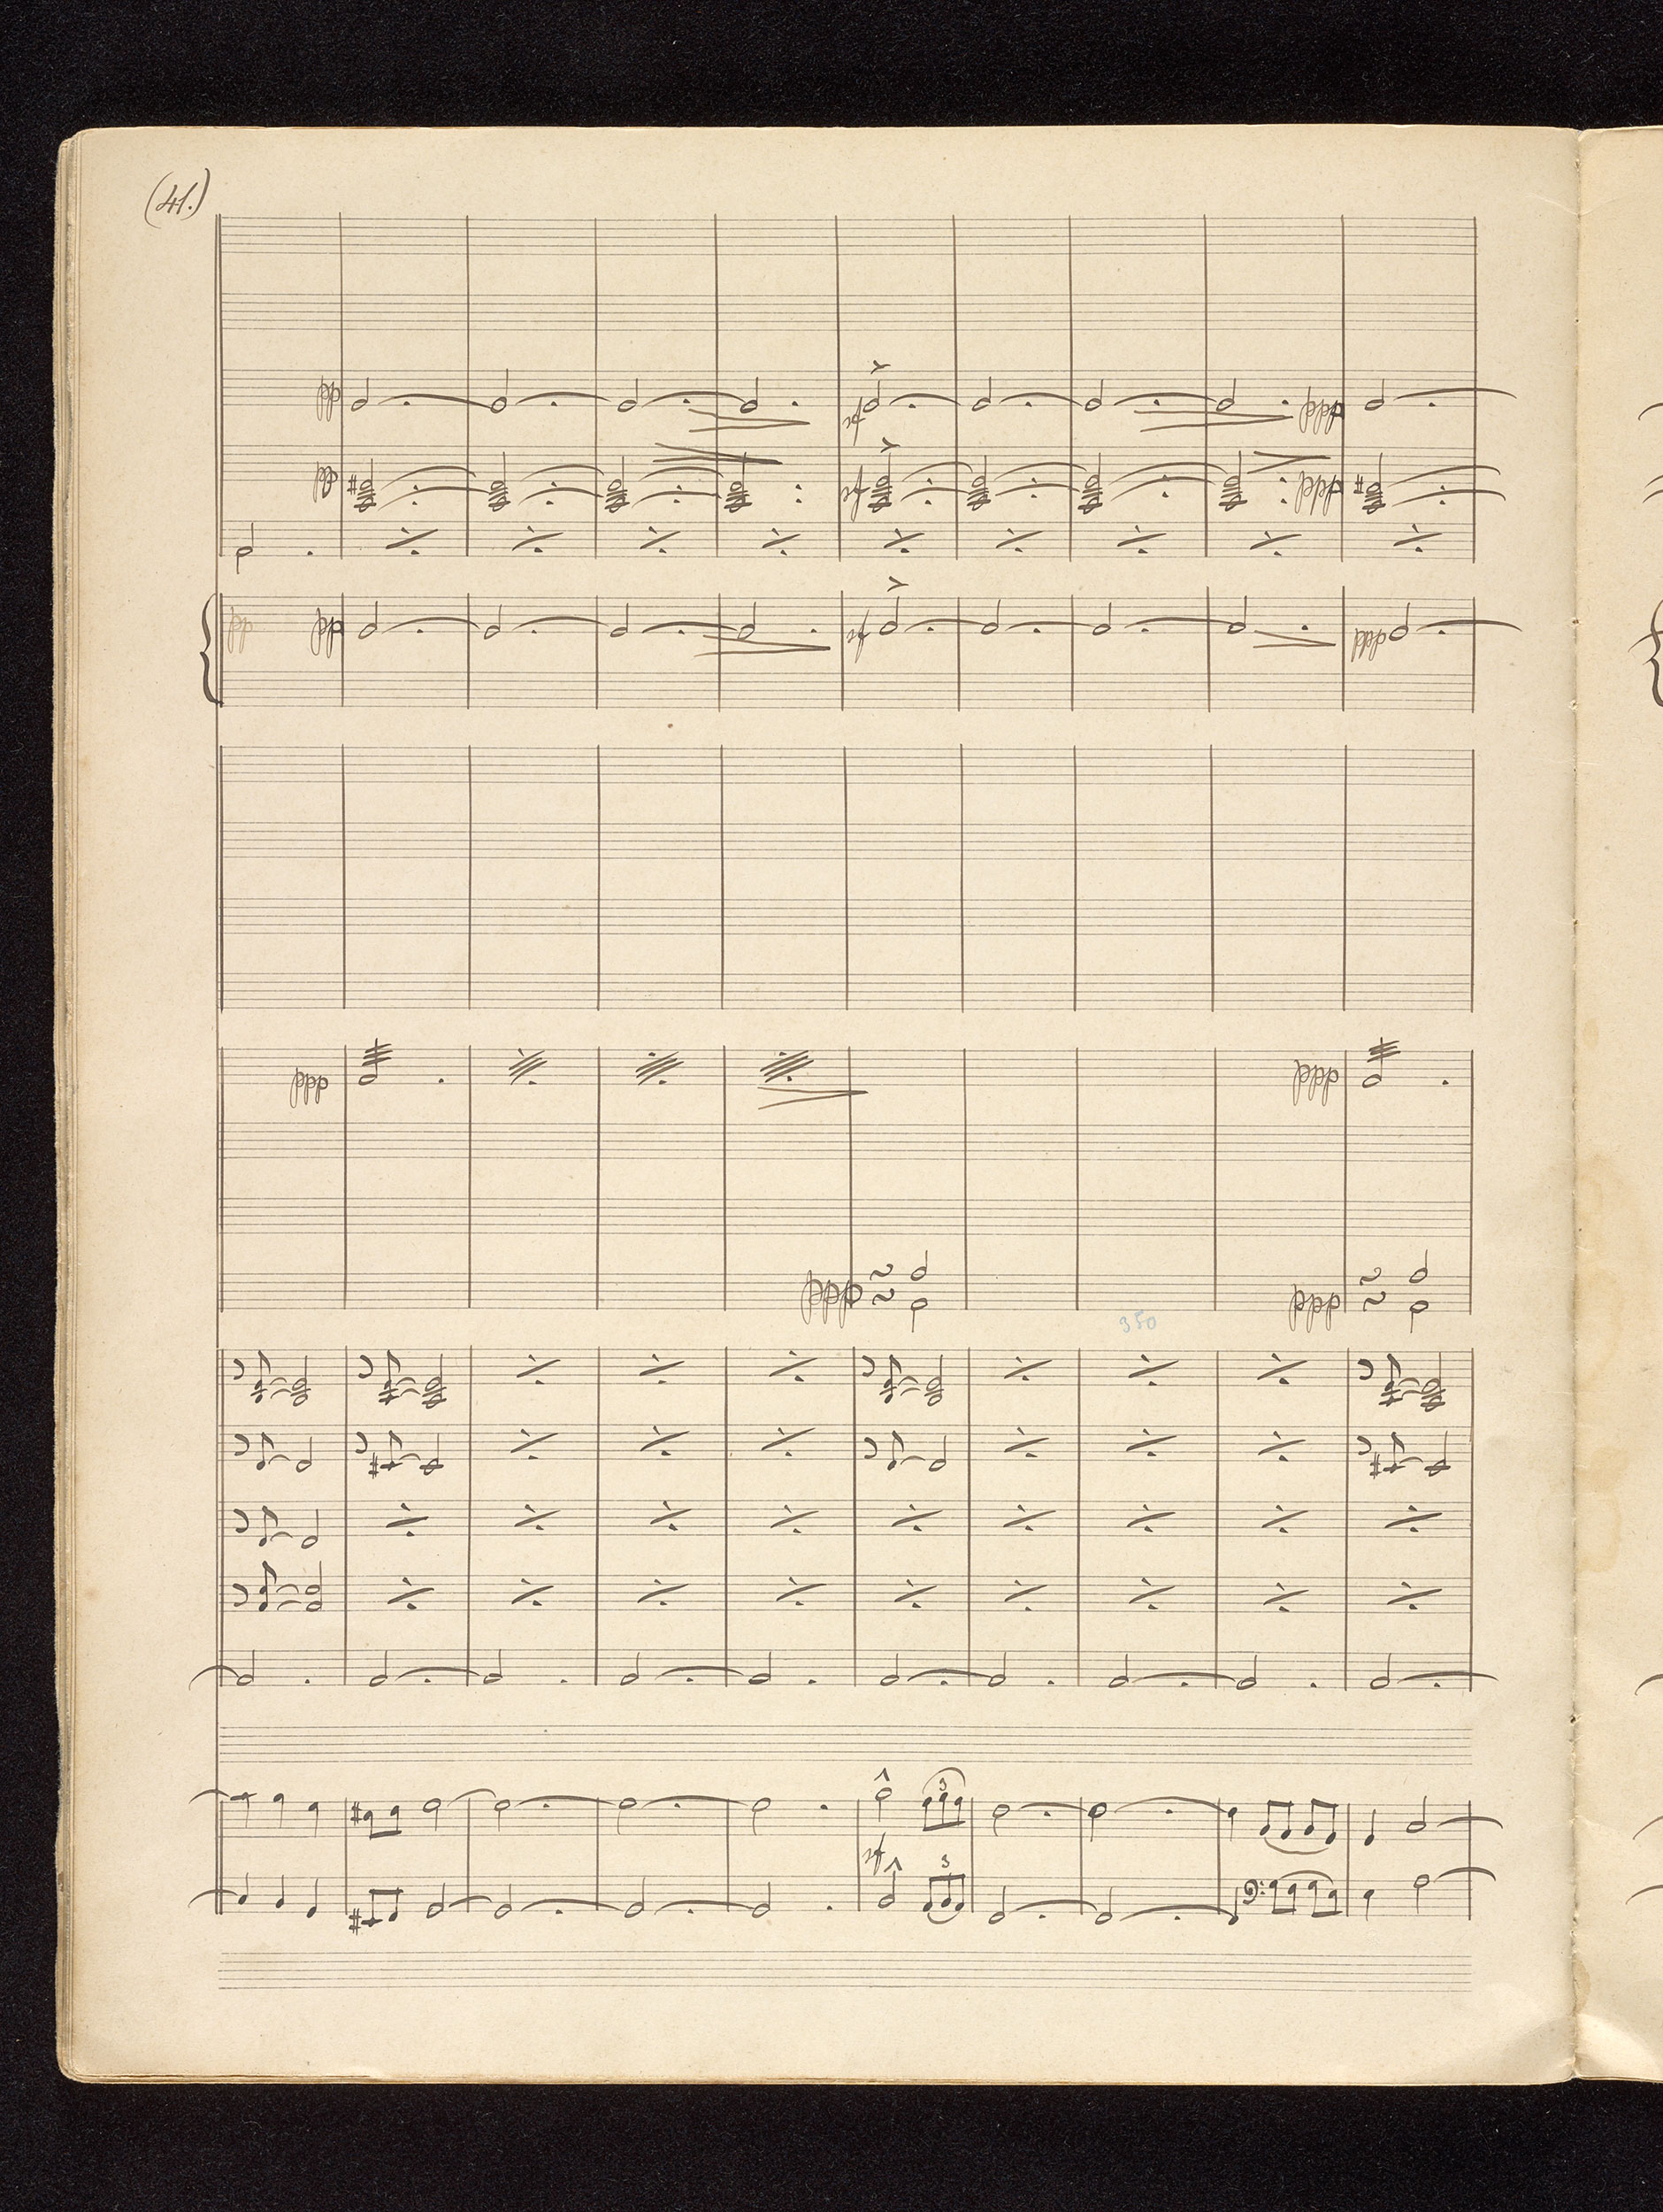 (41.)
pp sf ppp
pp sf ppp
pp pp sf ppp
ppp ppp
ppp ppp
350
3
sf
3